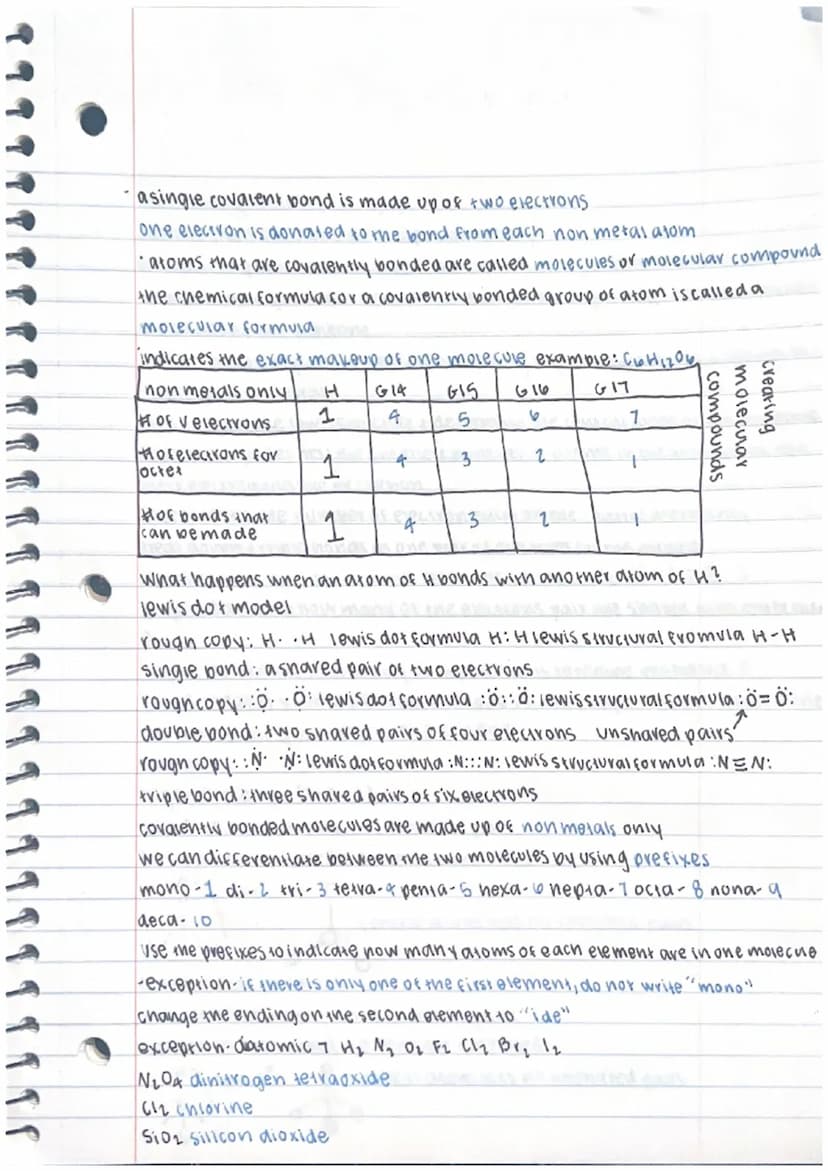 · a single covalent bond is made up of two electrons
one electron is donated to the bond from each non metal atom
· atoms that are covalently bonded are called molecules or molecular compound
the chemical formula for a covalently bonded group of atom is called a
molecular formula
indicates the exact makeup of one molecule example: C6H12O6
creating
molecular
compounds
non metals only H G14 G15 G16 G17
# of v electrons 1 4 5 6 7
# of electrons for
octet 1 4 3 2 1
# of bonds that
can be made 1 4 3 2 1
What happens when an atom of H bonds with another atom of H?
lewis dot model
rough copy: H· ·H lewis dot formula H:H lewis structural fromula H-H
single bond: a shared pair of two electrons
rough copy: :Ö· ·Ö: lewis dot formula :Ö::Ö: lewis structural formula :Ö=Ö:
double bond: two shared pairs of four electrons unshared pairs
rough copy: :Ṅ· ·Ṅ: lewis dot formula :N:::N: lewis structural formula :N≡N:
triple bond: three shared pairs of six electrons
covalently bonded molecules are made up of non metals only
we can differentiate between the two molecules by using prefixes
mono-1 di-2 tri-3 tetra-4 penta-5 hexa-6 hepta-7 octa-8 nona-9
deca-10
use the prefixes to indicate how many atoms of each element are in one molecue
-exception-if there is only one of the first element, do not write "mono"
change the ending on the second element to "ide"
exception-datomic 7 H2 N2 O2 F2 Cl2 Br2 I2
N2O4 dinitrogen tetraoxide
Cl2 chlorine
SiO2 silicon dioxide